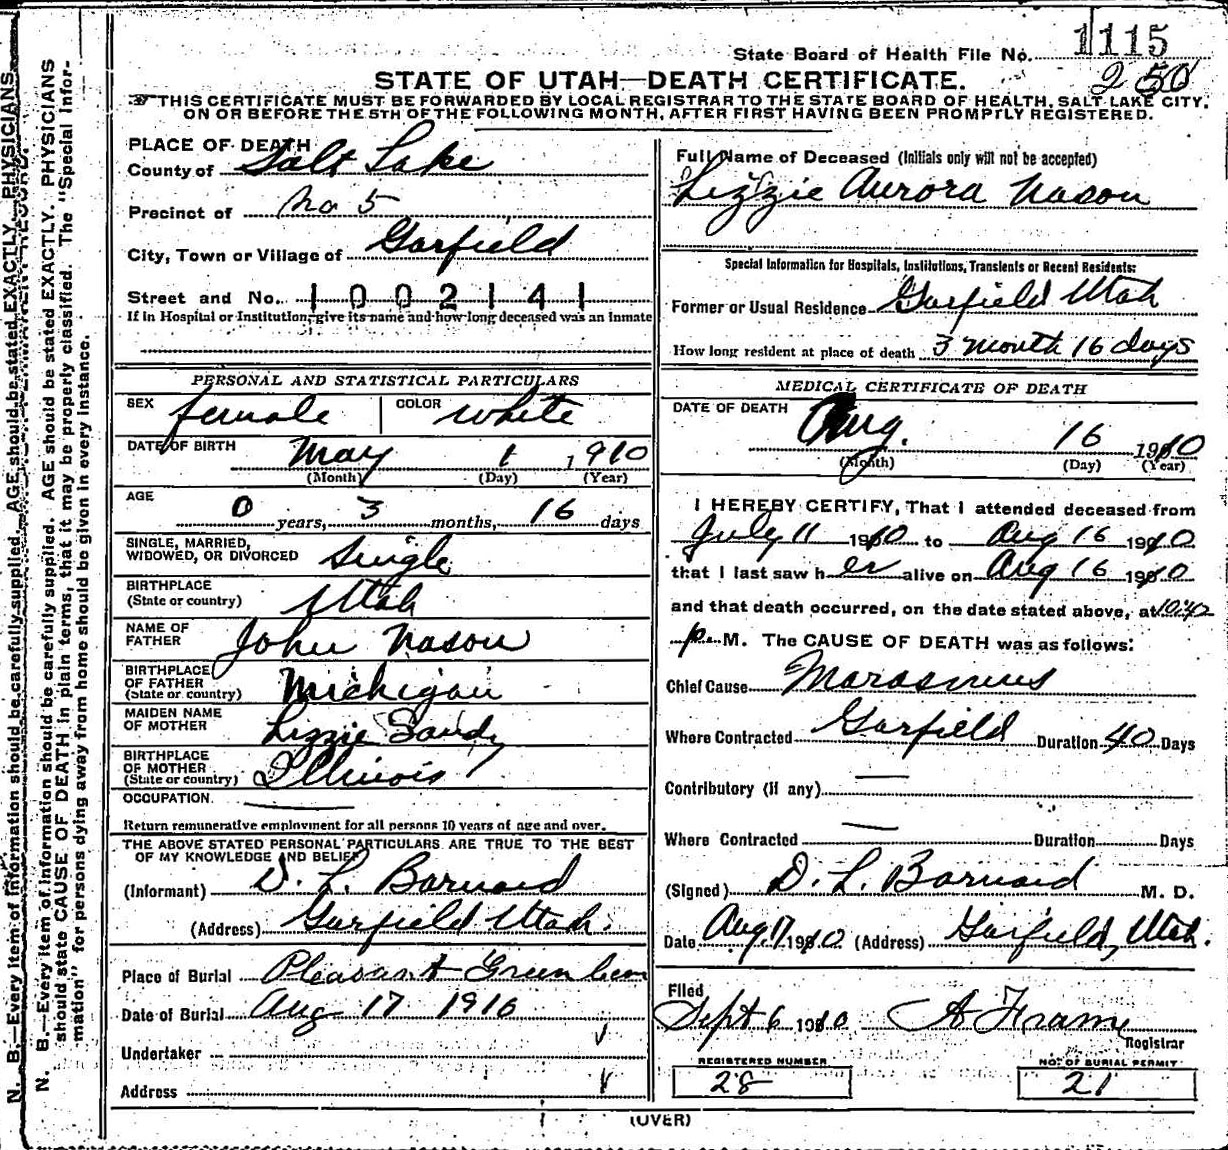 State Board of Health File No. 1115
250
STATE OF UTAH—DEATH CERTIFICATE.
THIS CERTIFICATE MUST BE FORWARDED BY LOCAL REGISTRAR TO THE STATE BOARD OF HEALTH, SALT LAKE CITY,
ON OR BEFORE THE 5TH OF THE FOLLOWING MONTH, AFTER FIRST HAVING BEEN PROMPTLY REGISTERED.
PLACE OF DEATH
County of Salt Lake
Precinct of No 5
City, Town or Village of Garfield
Street and No. 1002141
If in Hospital or Institution, give its name and how long deceased was an inmate
Full Name of Deceased (Initials only will not be accepted)
Lizzie Aurora Nason
Special Information for Hospitals, Institutions, Transients or Recent Residents:
Former or Usual Residence Garfield Utah
How long resident at place of death 3 month 16 days
PERSONAL AND STATISTICAL PARTICULARS
SEX female COLOR white
DATE OF BIRTH May 1 1910
(Month) (Day) (Year)
AGE
0 years, 3 months, 16 days
SINGLE, MARRIED,
WIDOWED, OR DIVORCED Single
BIRTHPLACE
(State or country) Utah
NAME OF
FATHER John Nason
BIRTHPLACE
OF FATHER
(State or country) Michigan
MAIDEN NAME
OF MOTHER Lizzie Sandy
BIRTHPLACE
OF MOTHER
(State or country) Illinois
OCCUPATION
Return remunerative employment for all persons 10 years of age and over.
THE ABOVE STATED PERSONAL PARTICULARS ARE TRUE TO THE BEST
OF MY KNOWLEDGE AND BELIEF
(Informant) D. L. Barnard
(Address) Garfield Utah.
Place of Burial Pleasant Green
Date of Burial Aug 17 1910
Undertaker
Address
MEDICAL CERTIFICATE OF DEATH
DATE OF DEATH Aug. 16 1910
(Month) (Day) (Year)
I HEREBY CERTIFY, That I attended deceased from
July 11 1910 to Aug 16 1910
that I last saw her alive on Aug 16 1910
and that death occurred, on the date stated above, at 10:42
p. M. The CAUSE OF DEATH was as follows:
Chief Cause Marasmus
Where Contracted Garfield Duration 40 Days
Contributory (if any)
Where Contracted Duration Days
(Signed) D. L. Barnard M. D.
Date Aug 17 1910 (Address) Garfield, Utah.
Filed
Sept 6 1910 A Frame
Registrar
REGISTERED NUMBER
28
NO. OF BURIAL PERMIT
21
(OVER)
N. B.—Every item of information should be carefully supplied. AGE should be stated EXACTLY. PHYSICIANS
N. B.—Every item of information should be carefully supplied. AGE should be stated EXACTLY. PHYSICIANS
should state CAUSE OF DEATH in plain terms, that it may be properly classified. The "Special Infor-
mation" for persons dying away from home should be given in every instance.